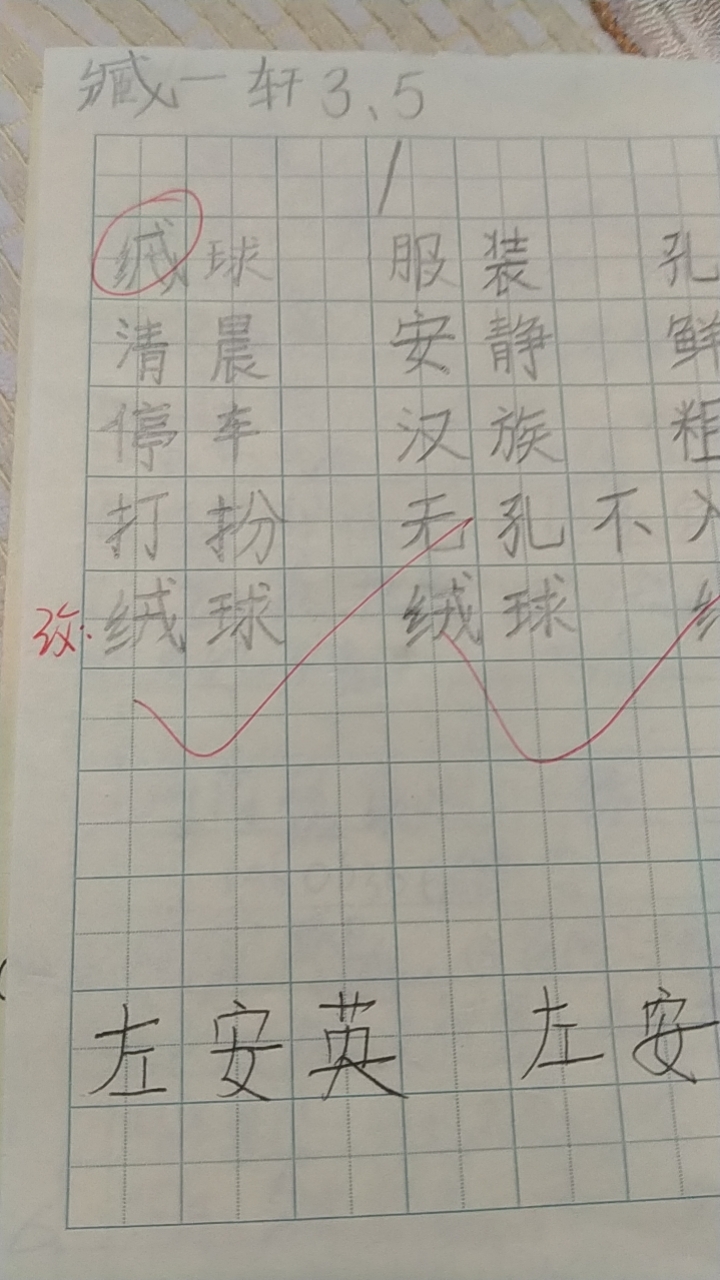 臧一轩 3、5
球 服装 孔
清晨 安静 鲜
停车 汉族 粗
打扮 无孔不入
改: 绒球 绒球
左安英 左安